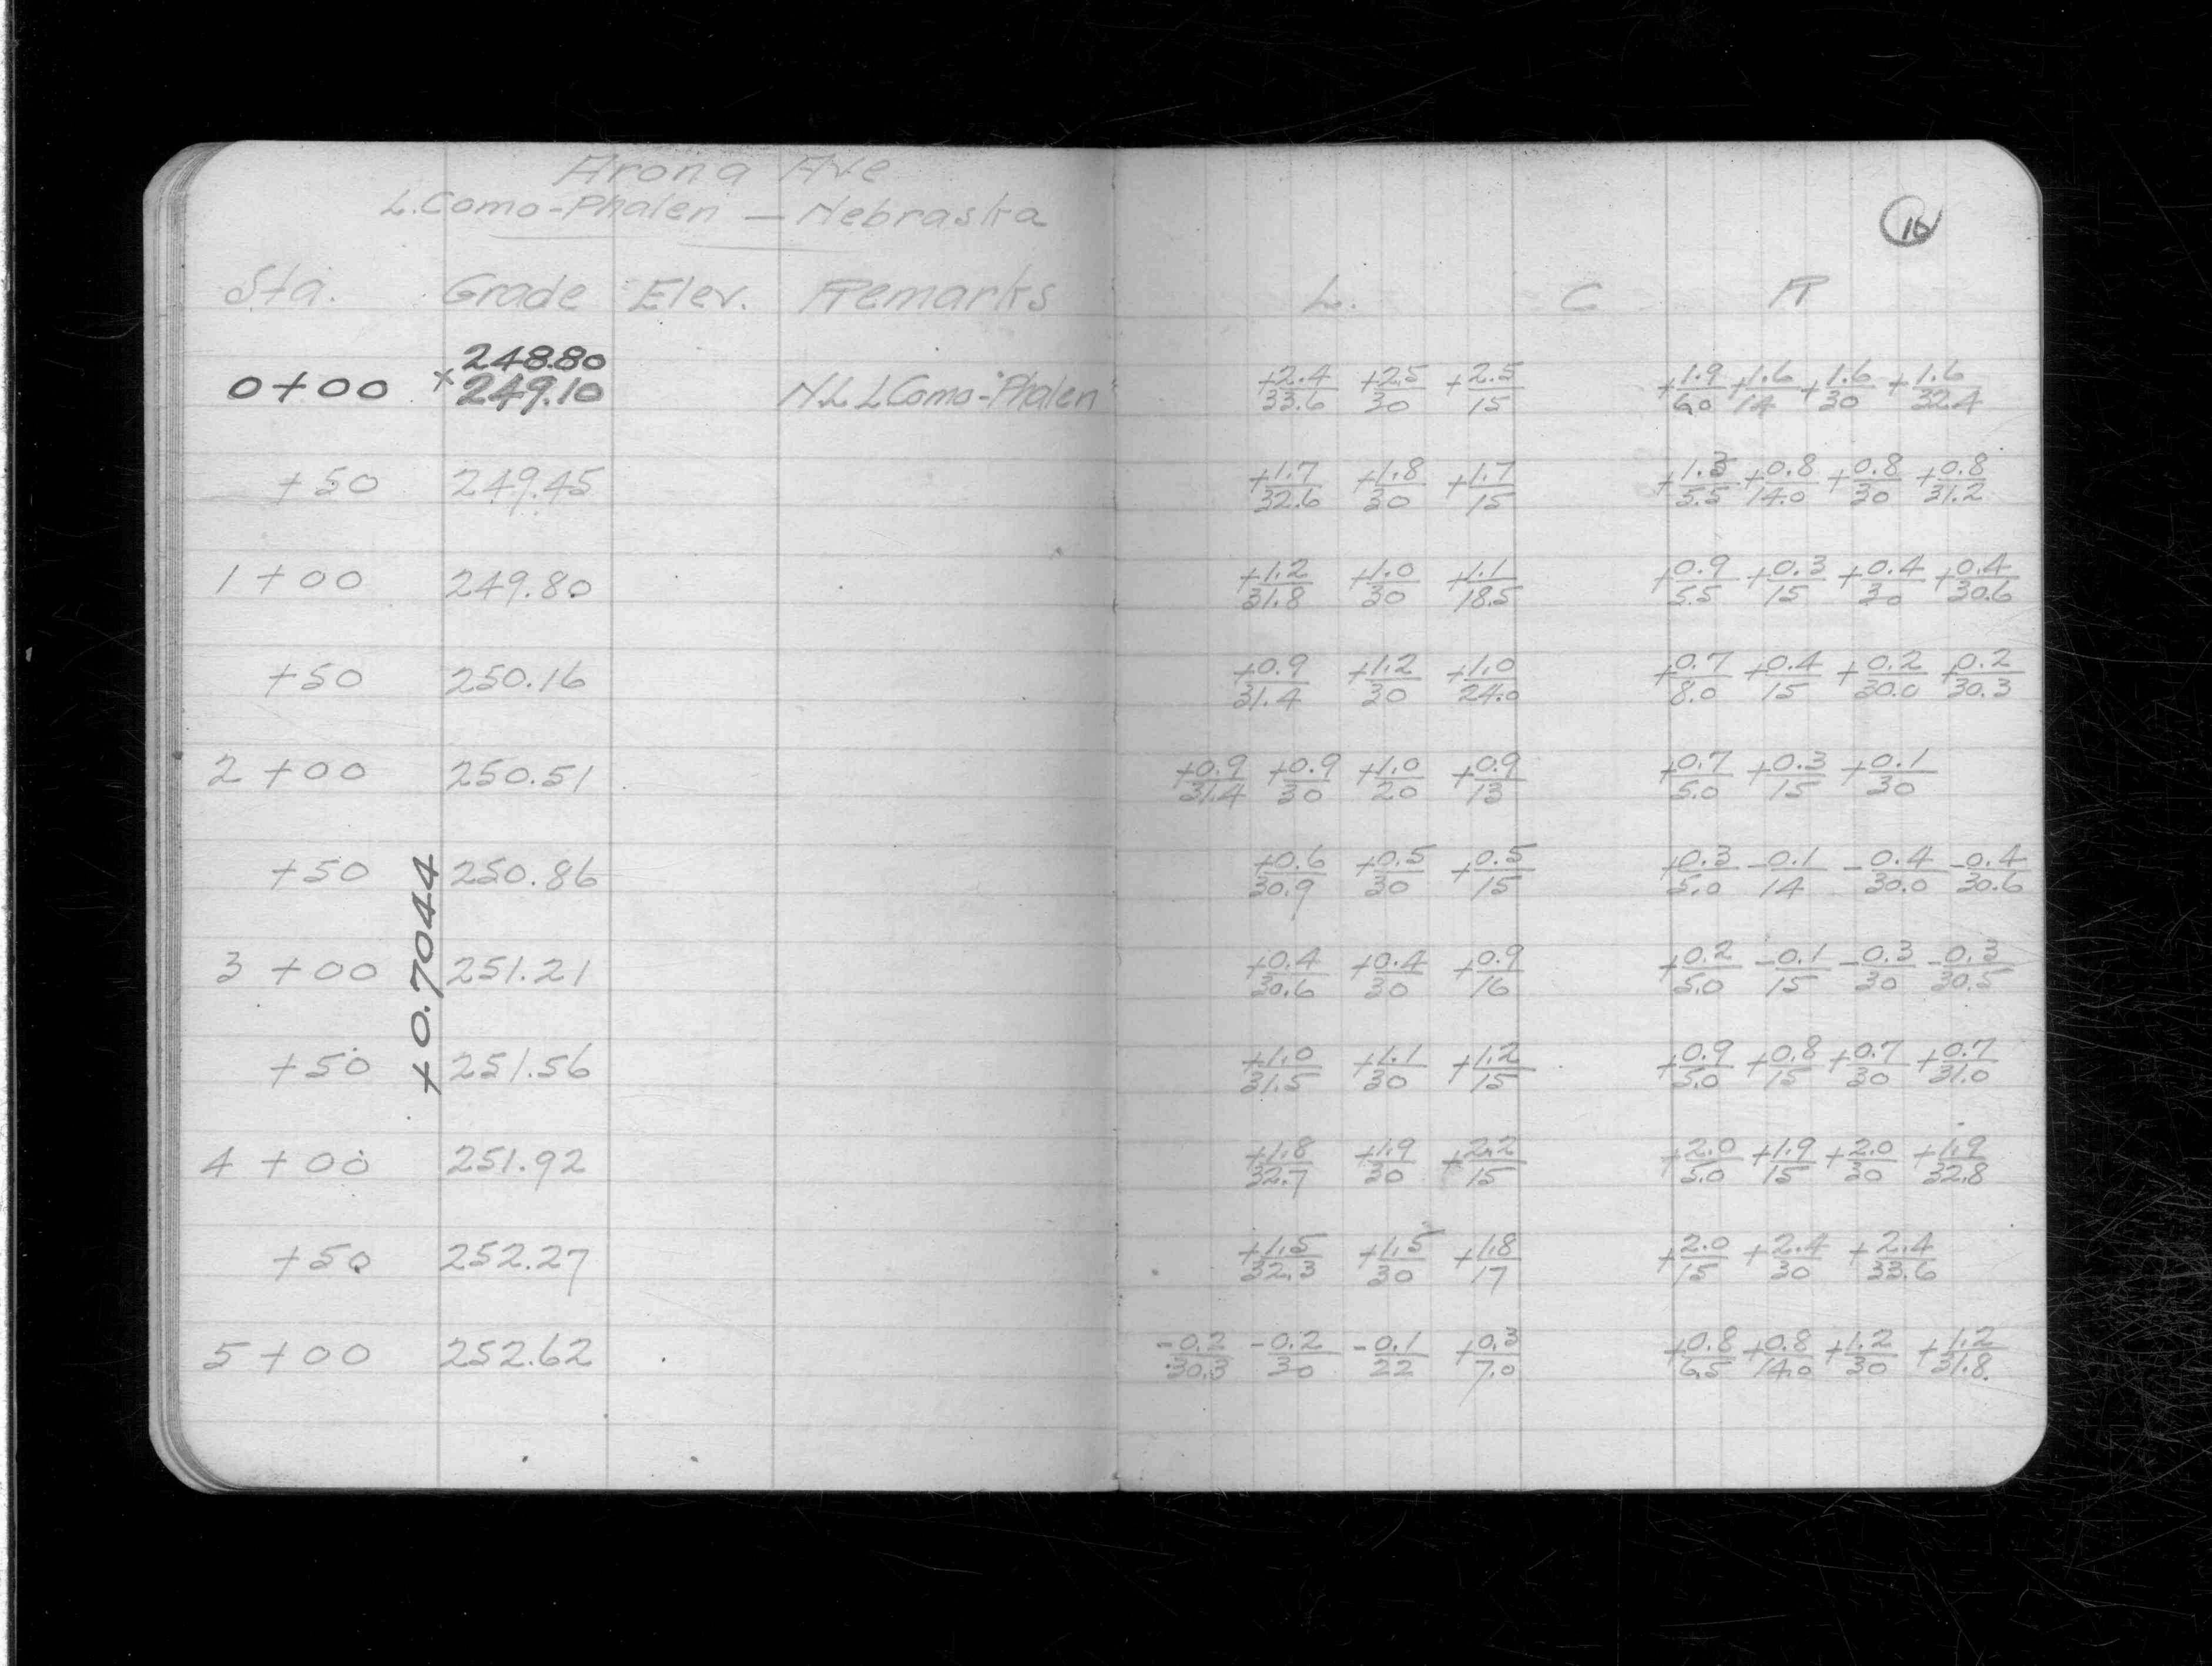 Arona Ave
L.Como-Phalen — Nebraska
16
Sta. Grade Elev. Remarks L. C R
248.80
0+00 x 249.10 N.L L.Como-"Phalen" +2.4/33.6 +2.5/30 +2.5/15 +1.9/6.0 +1.6/14 +1.6/30 +1.6/32.4
+50 249.45 +1.7/32.6 +1.8/30 +1.7/15 +1.3/5.5 +0.8/14.0 +0.8/30 +0.8/31.2
1+00 249.80 +1.2/31.8 +1.0/30 +1.1/18.5 +0.9/5.5 +0.3/15 +0.4/30 +0.4/30.6
+50 250.16 +0.9/31.4 +1.2/30 +1.0/24.0 +0.7/8.0 +0.4/15 +0.2/30.0 +0.2/30.3
2+00 250.51 +0.9/31.4 +0.9/30 +1.0/20 +0.9/13 +0.7/5.0 +0.3/15 +0.1/30
+50 250.86 +0.6/30.9 +0.5/30 +0.5/15 +0.3/5.0 -0.1/14 -0.4/30.0 -0.4/30.6
+0.7044
3+00 251.21 +0.4/30.6 +0.4/30 +0.9/16 +0.2/5.0 -0.1/15 -0.3/30 -0.3/30.5
+50 251.56 +1.0/31.5 +1.1/30 +1.2/15 +0.9/5.0 +0.8/15 +0.7/30 +0.7/31.0
4+00 251.92 +1.8/32.7 +1.9/30 +2.2/15 +2.0/5.0 +1.9/15 +2.0/30 +1.9/32.8
+50 252.27 +1.5/32.3 +1.5/30 +1.8/17 +2.0/15 +2.4/30 +2.4/33.6
5+00 252.62 -0.2/30.3 -0.2/30 -0.1/22 +0.3/7.0 +0.8/6.5 +0.8/14.0 +1.2/30 +1.2/31.8